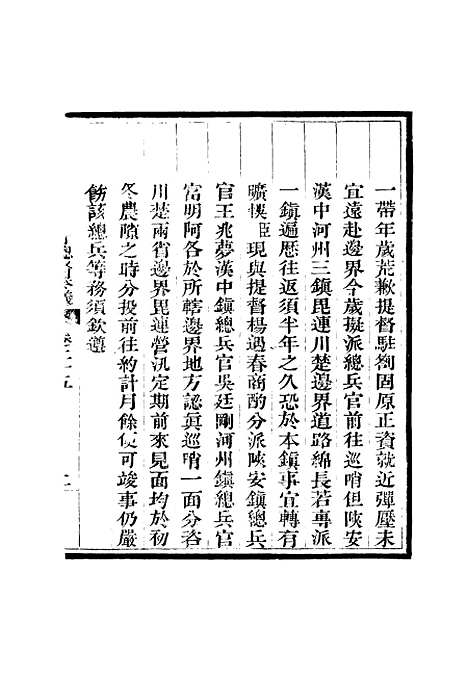 一帶年歲荒歉提督駐劄固原正資就近彈壓未
宜遠赴邊界今歲擬派總兵官前往巡哨但陝安
漢中河州三鎮毘連川楚邊界道路綿長若專派
一鎮遍歷往返須半年之久恐於本鎮事宜轉有
曠悞臣現與提督楊遇春商酌分派陝安鎮總兵
官王兆夢漢中鎮總兵官吳廷剛河州鎮總兵官
富明阿各於所轄邊界地方認眞巡哨一面分咨
川楚兩省邊界毘連營汛定期前來見面均於初
冬農隙之時分投前往約計月餘便可竣事仍嚴
飭該總兵等務須欽遵